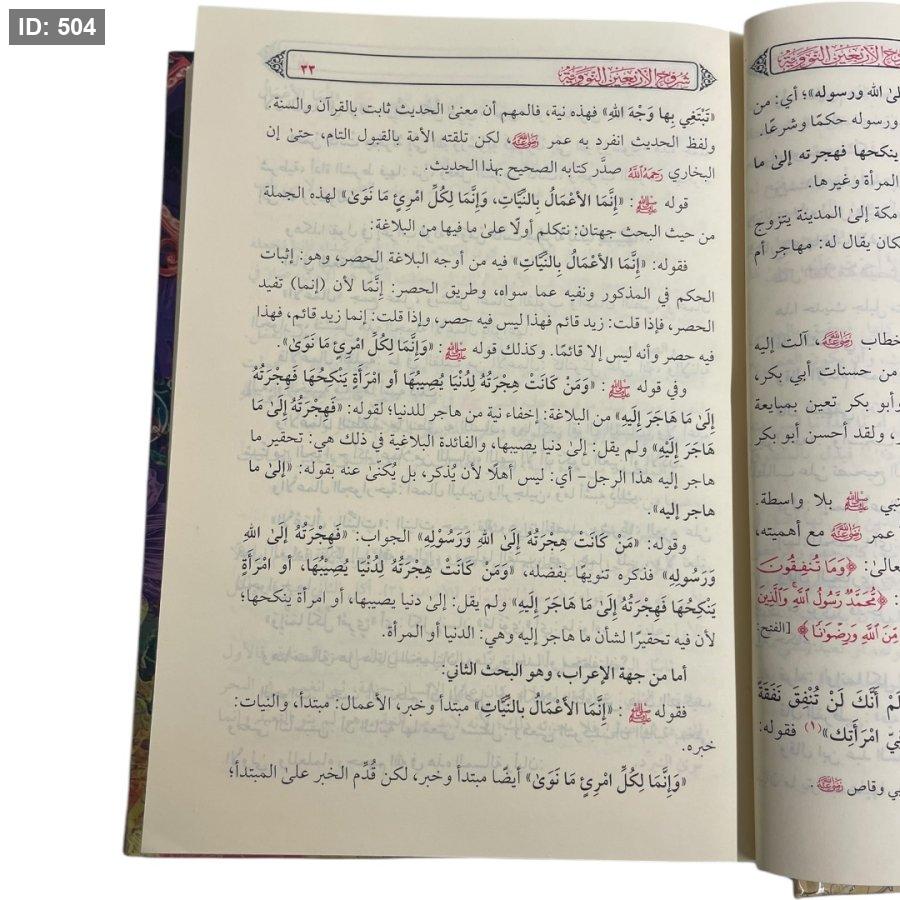 ID: 504
شروح الأربعين النووية
٣٣
«تَبْتَغِي بِها وَجْهَ اللهِ» فهذه نية، فالمهم أن معنىٰ الحديث ثابت بالقرآن والسنة.
ولفظ الحديث انفرد به عمر رضي الله عنه، لكن تلقته الأمة بالقبول التام، حتىٰ إن
البخاري رحمه الله صدَّر كتابه الصحيح بهذا الحديث.
قوله ﷺ: «إِنَّمَا الأَعْمَالُ بِالنِّيَّاتِ، وَإِنَّمَا لِكُلِّ امْرِئٍ مَا نَوَىٰ» لهذه الجملة
من حيث البحث جهتان: نتكلم أولًا علىٰ ما فيها من البلاغة:
فقوله: «إِنَّمَا الأَعْمَالُ بِالنِّيَّاتِ» فيه من أوجه البلاغة الحصر، وهو: إثبات
الحكم في المذكور ونفيه عما سواه، وطريق الحصر: إِنَّمَا لأن (إنما) تفيد
الحصر، فإذا قلت: زيد قائم فهذا ليس فيه حصر، وإذا قلت: إنما زيد قائم، فهذا
فيه حصر وأنه ليس إلا قائمًا. وكذلك قوله ﷺ: «وَإِنَّمَا لِكُلِّ امْرِئٍ مَا نَوَىٰ».
وفي قوله ﷺ: «وَمَنْ كَانَتْ هِجْرَتُهُ لِدُنْيَا يُصِيبُهَا أو امْرَأَةٍ يَنْكِحُهَا فَهِجْرَتُهُ
إِلَىٰ مَا هَاجَرَ إِلَيهِ» من البلاغة: إخفاء نية من هاجر للدنيا؛ لقوله: «فَهِجْرَتُهُ إِلَىٰ مَا
هَاجَرَ إِلَيْهِ» ولم يقل: إلىٰ دنيا يصيبها، والفائدة البلاغية في ذلك هي: تحقير ما
هاجر إليه هذا الرجل- أي: ليس أهلًا لأن يُذكر، بل يُكنّىٰ عنه بقوله: «إلىٰ ما
هاجر إليه».
وقوله: «مَنْ كَانَتْ هِجْرَتُهُ إِلَىٰ اللهِ وَرَسُولِهِ» الجواب: «فَهِجْرَتُهُ إِلَىٰ اللهِ
وَرَسُولِهِ» فذكره تنويهًا بفضله، «وَمَنْ كَانَتْ هِجْرَتُهُ لِدُنْيَا يُصِيْبُهَا، أو امْرَأَةٍ
يَنْكِحُهَا فَهِجْرَتُهُ إِلَىٰ مَا هَاجَرَ إِلَيهِ» ولم يقل: إلىٰ دنيا يصيبها، أو امرأة ينكحها؛
لأن فيه تحقيرًا لشأن ما هاجر إليه وهي: الدنيا أو المرأة.
أما من جهة الإعراب، وهو البحث الثاني:
فقوله ﷺ: «إِنَّمَا الأَعْمَالُ بِالنِّيَّاتِ» مبتدأ وخبر، الأعمال: مبتدأ، والنيات:
خبره.
«وَإِنَّمَا لِكُلِّ امْرِئٍ مَا نَوَىٰ» أيضًا مبتدأ وخبر، لكن قُدِّم الخبر علىٰ المبتدأ؛
الأربعين النووية
الله ورسوله»؛ أي: من
ورسوله حكمًا وشرعًا.
ينكحها فهجرته إلىٰ ما
المرأة وغيرها.
مكة إلىٰ المدينة يتزوج
يقال له: مهاجر أم
رضي الله عنه، آلت إليه
من حسنات أبي بكر،
أبو بكر تعين بمبايعة
ولقد أحسن أبو بكر
ﷺ بلا واسطة.
عمر رضي الله عنه مع أهميته،
﴿وَمَا تُنفِقُونَ
﴿مُّحَمَّدٌ رَّسُولُ اللَّهِ وَالَّذِينَ
مِّنَ اللَّهِ وَرِضْوَنًا﴾ [الفتح:
أَنَّكَ لَنْ تُنْفِقَ نَفَقَةً
امْرَأَتِك»(١) فقوله:
وقاص رضي الله عنه.